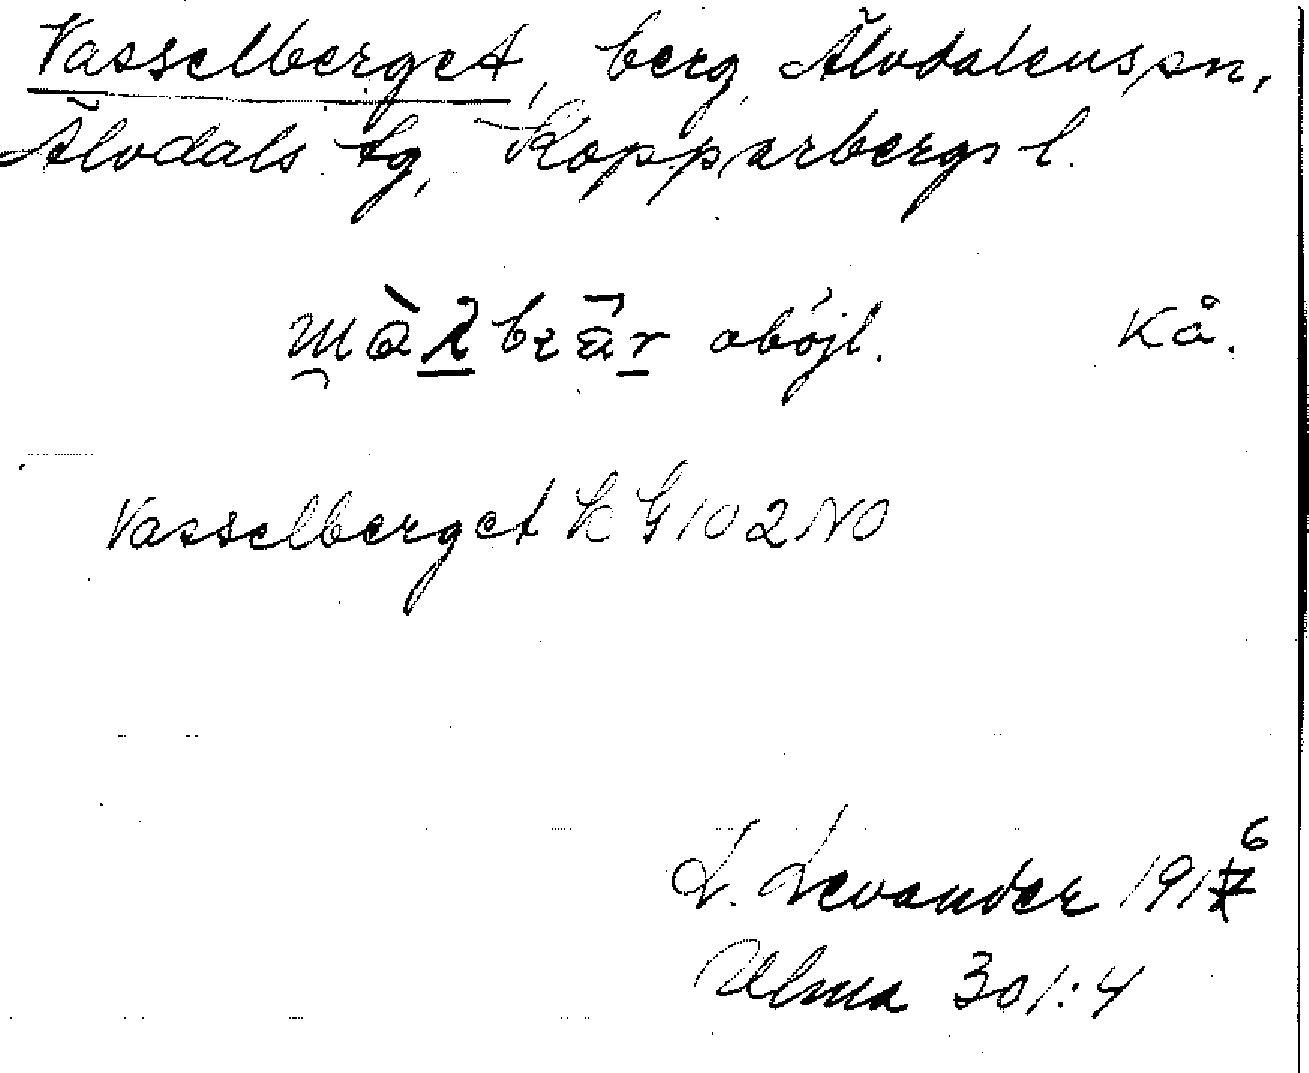 Vasselberget, berg, Älvdalens sn,
Älvdals tg, Kopparbergs l.
oböjl. Kå.
Vasselberget K G 102 NO
L. Levander 1916
Ulma 301:4